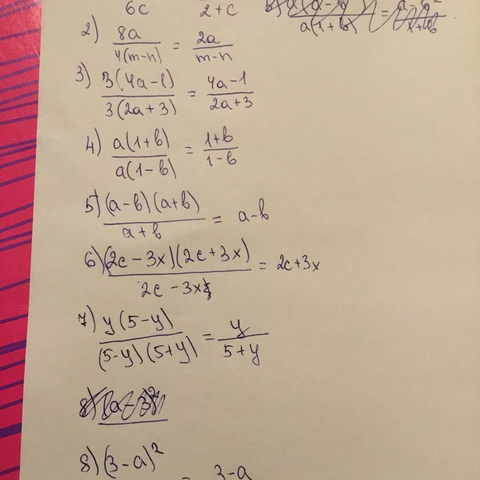 6c 2+c
a(1+b)
2) 8a/4(m-n) = 2a/m-n
3) 3(4a-1)/3(2a+3) = 4a-1/2a+3
4) a(1+b)/a(1-b) = 1+b/1-b
5) (a-b)(a+b)/a+b = a-b
6) (2c-3x)(2c+3x)/2c-3x = 2c+3x
7) y(5-y)/(5-y)(5+y) = y/5+y
8) (3-a)² = 3-a